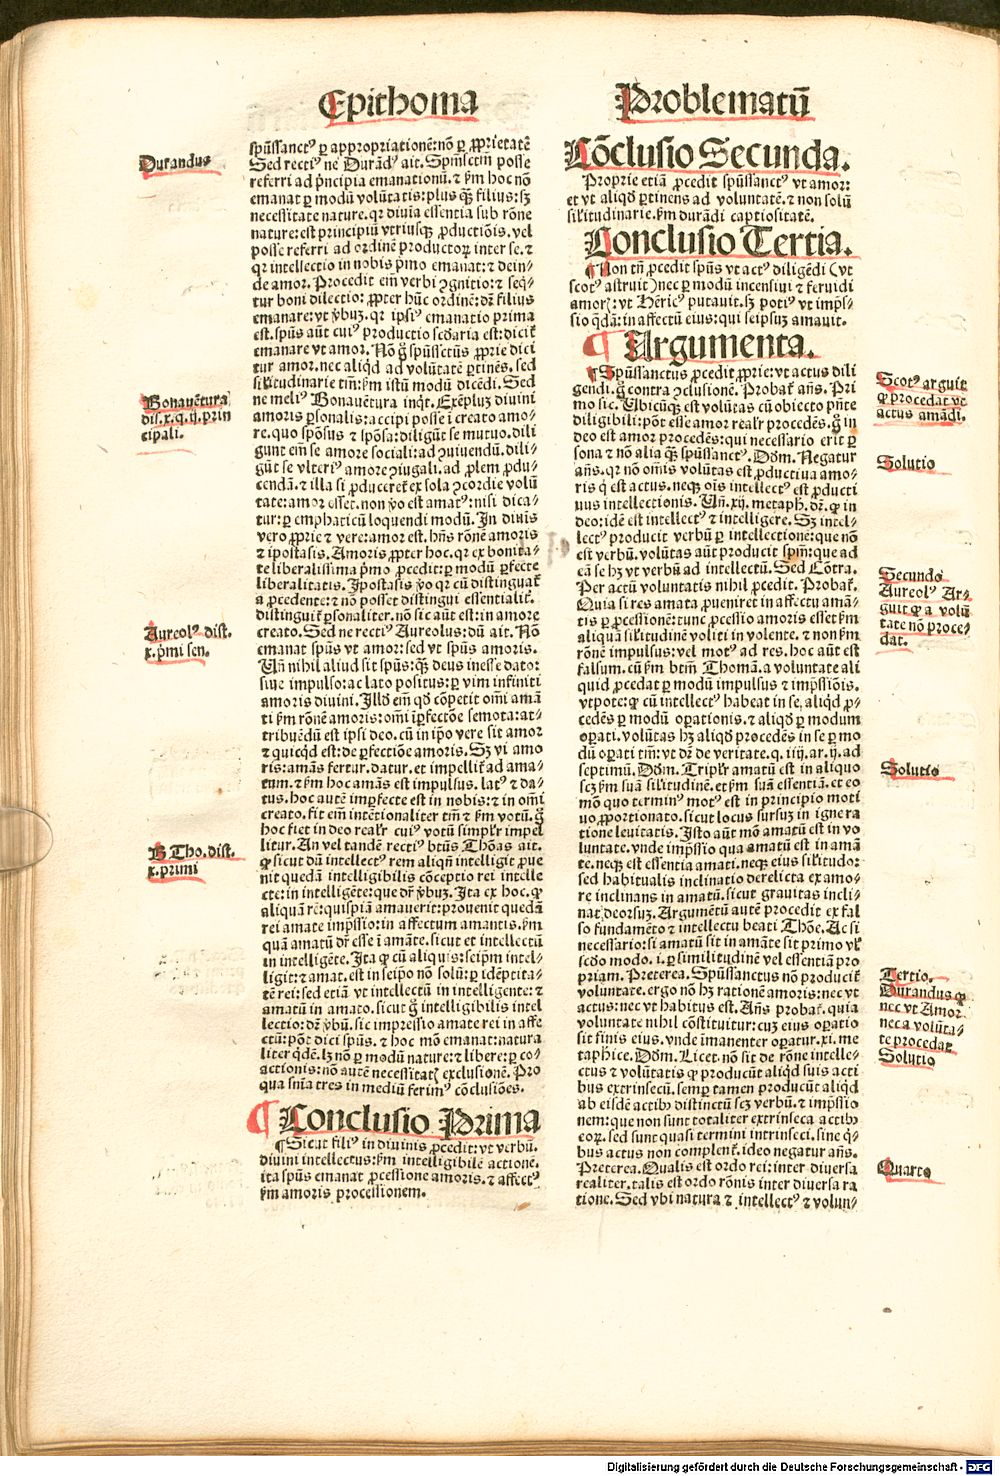 Epithoma
Durandus
spūssanctꝰ ꝑ appropriationē: nō ꝑ ꝓprietatē
Sed rectiꝰ ne Durādꝰ ait. Spm̄sctm̄ posse
referri ad pͥncipia emanationū. ⁊ ẜm hoc nō
emanat ꝑ modū volūtatis: plus qᷓꝫ filius: sꝫ
necessitate nature. qꝛ diuīa essentia sub rōne
nature: est principiū vtriusqꝫ ꝓductiōis. vel
posse referri ad ordinē productoꝝ inter se. ⁊
qꝛ intellectio in nobis pͥmo emanat: ⁊ dein⸗
de amor. Procedit em̄ verbi ꝯgnitio: ⁊ seqͥ⸗
tur boni dilectio: ꝓpter hūc ordinē: dꝛ̄ filius
emanare: vt ꝟbuꝫ. qꝛ ipsiꝰ emanatio prima
est. spūs aūt cuiꝰ productio secūdaria est: dicit̄
emanare vt amor. Nō gͦ spūssctūs ꝓprie dici
tur amor. nec aliqd̄ ad volūtatē ꝑtinēs. sed
sil̄itudinarie tm̄: ẜm istū modū dicēdi. Sed
Bonauētura
dis. x. q. ij. prin
cipali.
ne meliꝰ Bonauētura inqͥt. Exēpluꝫ diuini
amoris ꝑsonalis: accipi posse ī creato amo⸗
re. quo spōsus ⁊ spōsa: diligūt se mutuo. dili
gunt em̄ se amore sociali: ad ꝯuiuendū. dili⸗
gūt se vlteriꝰ amore ꝯiugali. ad ꝓlem ꝓdu⸗
cendā. ⁊ illa si ꝓduceret̄ ex sola ꝯcordie volū
tate: amor esset. non ꝟo est amatꝰ: nisi dica⸗
tur: ꝑ emphaticū loquendi modū. In diuīs
vero ꝓprie ⁊ vere: amor est. hn̄s rōnē amoris
⁊ ipostasis. Amoris ꝓpter hoc. qꝛ ex bonita⸗
te liberalissima pͥmo ꝓcedit: ꝑ modū ꝑfecte
liberalitatis. Ipostasis ꝟo qꝛ cū distinguat̄
a ꝓcedente: ⁊ nō posset distingui essentialit̄.
distinguit̄ ꝑsonaliter. nō sic aūt est: in amore
Aureolꝰ dist.
x. pͥmi sen.
creato. Sed ne rectiꝰ Aureolus: dū ait. Nō
emanat spūs vt amor: sed vt spūs amoris.
Uñ nihil aliud sit spūs: qᷓꝫ deus inesse dator
siue impulso: ac lato positus: ꝑ vim infiniti
amoris diuini. Illd̄ em̄ qd̄ cōpetit om̄i amā
ti ẜm rōnē amoris: om̄i īꝑfectiōe semota: at⸗
tribuēdū est ipsi deo. cū in ipo vere sit amor
⁊ quicqd̄ est: de ꝑfectiōe amoris. Sꝫ vi amo
ris: amās fertur. datur. et impellit̄ ad ama⸗
tum. ⁊ ẜm hoc amās est impulsus. latꝰ ⁊ da⸗
tus. hoc autē imꝑfecte est in nobis: ⁊ in om̄i
creato. fit em̄ intētionaliter tm̄ ⁊ ẜm votū. gͦ
hoc fiet in deo realr̄ cuiꝰ votū simplr̄ impel
B Tho. dist.
x. primi
litur. An vel tandē rectiꝰ btūs Thōas ait.
ꝙ sicut dū intellectꝰ rem aliqᷓm intelligit ꝓue
nit quedā intelligibilis cōceptio rei intelle
cte: in intelligēte: que dꝛ̄ ꝟbuꝫ. Ita ex hoc. ꝙ
aliquā rē: quispiā amauerit: prouenit quedā
rei amate impssio: in affectum amantis. ẜm
quā amatū dꝛ̄ esse ī amāte. sicut et intellectū
in intelligēte. Ita ꝙ cū aliquis: seipm̄ intel⸗
ligit: ⁊ amat. est in seipo nō solū: ꝑ idēptita⸗
tē rei: sed etiā vt intellectū in intelligente: ⁊
amatū in amato. sicut gͦ intelligibilis intel
lectio: dꝛ̄ ꝟbū. sic impressio amate rei in affe
ctū: pōt dici spūs. ⁊ hoc mō emanat: natura
liter qͥdē. lꝫ nō ꝑ modū nature: ⁊ libere: ꝑ co⸗
actionis: nō autē necessitatꝭ exclusionē. Pro
qua sn̄ia tres in mediū ferimꝰ cōclusiōes.
¶ Conclusio Prima
¶ Sicut filiꝰ in diuinis ꝓcedit: vt verbū.
diuini intellectus: ẜm intelligibilē actionē.
ita spūs emanat ꝓcessione amoris. ⁊ affectꝰ
ẜm amoris processionem.
Problematū
Cōclusio Secunda.
Proprie etiā ꝓcedit spūssanctꝰ vt amor:
et vt aliqd̄ ꝑtinens ad voluntatē. ⁊ non solū
sil̄itudinarie. ẜm durādi captiositatē.
Conclusio Tertia.
¶ Non tn̄ ꝓcedit spūs vt actꝰ diligēdi (vt
scotꝰ astruit) nec ꝑ modū incensiui ⁊ feruidi
amorꝭ: vt Hēricꝰ putauit. sꝫ potiꝰ vt impss⸗
sio qᷓdā: in affectū eius: qui seipsuꝫ amauit.
¶ Argumenta.
Scotꝰ arguit
ꝙ procedat vt
actus amādi.
¶ Spūssanctus ꝓcedit ꝓprie: vt actus dili
gendi. gͦ contra ꝯclusionē. Probat̄ añs. Pri
mo sic. Ubicūqꝫ est volūtas cū obiecto pn̄te
diligibili: pōt esse amor realr̄ procedēs. gͦ in
deo est amor procedēs: qui necessario erit ꝑ
sona ⁊ nō alia qᷓꝫ spūssanctꝰ. Dōm. Negatur
Solutio
añs. qꝛ nō om̄is volūtas est ꝓductiua amo⸗
ris qͥ est actus. neqꝫ oīs intellectꝰ est ꝓducti
uus intellectionis. Uñ. xij. metaph. dꝛ̄. ꝙ in
deo: idē est intellectꝰ ⁊ intelligere. Sꝫ intel⸗
lectꝰ producit verbū ꝑ intellectionē: que nō
est verbū. volūtas aūt producit spm̄: que ad
eā se hꝫ vt verbū ad intellectū. Sed Cōtra.
Secundo
Aureolꝰ Ar⸗
guit ꝙ a volū
tate nō proce⸗
dat.
Per actū voluntatis nihil ꝓcedit. Probat̄.
Quia si res amata ꝓueniret in affectu amā⸗
tis ꝑ ꝓcessionē: tunc ꝓcessio amoris esset ẜm
aliquā sil̄itudinē voliti in volente. ⁊ non ẜm
rōnē impulsus: vel motꝰ ad res. hoc aūt est
falsum. cū ẜm btm̄ Thomā. a voluntate ali
quid ꝓcedat ꝑ modū impulsus ⁊ imp̄ssiōis.
vtpote: ꝙ cū intellectꝰ habeat in se. aliqd̄ ꝓ⸗
cedēs ꝑ modū oꝑationis. ⁊ aliqd̄ ꝑ modum
oꝑati. volūtas hꝫ aliqd̄ procedēs in se ꝑ mo
dū oꝑati tm̄: vt dꝛ̄ de veritate. q. iiij. ar. ij. ad
Solutio
septimū. Dōm. Triplr̄ amatū est in aliquo
scꝫ ẜm suā sil̄itudinē. et ẜm suā essentiā. et eo
mō quo terminꝰ motꝰ est in principio moti
uo ꝓportionato. sicut locus sursuꝫ in igne ra
tione leuitatis. Isto aūt mō amatū est in vo
luntate. vnde imp̄ssio qua amatū est in amā
te. neqꝫ est essentia amati. neqꝫ eius sil̄itudo:
sed habitualis inclinatio derelicta ex amo⸗
re inclinans in amatū. sicut grauitas incli⸗
nat deorsuꝫ. Argumētū autē procedit ex fal
so fundamēto ⁊ intellectu beati Thōe. Ac si
necessario: si amatū sit in amāte sit primo vl̄
secd̄o modo. i. ꝑ similitudinē vel essentiā pro
Tertio.
Durandus ꝙ
nec vt Amor
nec a volūta⸗
te procedat
Solutio
priam. Preterea. Spūssanctus nō producit̄
voluntate. ergo nō hꝫ rationē amoris: nec vt
actus: nec vt habitus est. Añs probat̄. quia
voluntate nihil cōstituitur: cuꝫ eius oꝑatio
sit finis eius. vnde imanenter oꝑatur. xi. me
taphice. Dōm. Licet. nō sit de rōne intelle⸗
ctus ⁊ volūtatis ꝙ producūt aliqd̄ suis acti
bus extrinsecū. semꝑ tamen producūt aliqd̄
ab eisdē actibꝰ distinctū scꝫ verbū. ⁊ imp̄ssio
nem: que non sunt totaliter extrinseca actibꝰ
eoꝝ. sed sunt quasi termini intrinseci. sine qͥ⸗
bus actus non complent̄. ideo negatur añs.
Quarto
Preterea. Qualis est ordo rei: inter diuersa
realiter. talis est ordo rōnis inter diuersa ra
tione. Sed vbi natura ⁊ intellectꝰ ⁊ volun⸗
Digitalisierung gefördert durch die Deutsche Forschungsgemeinschaft - DFG